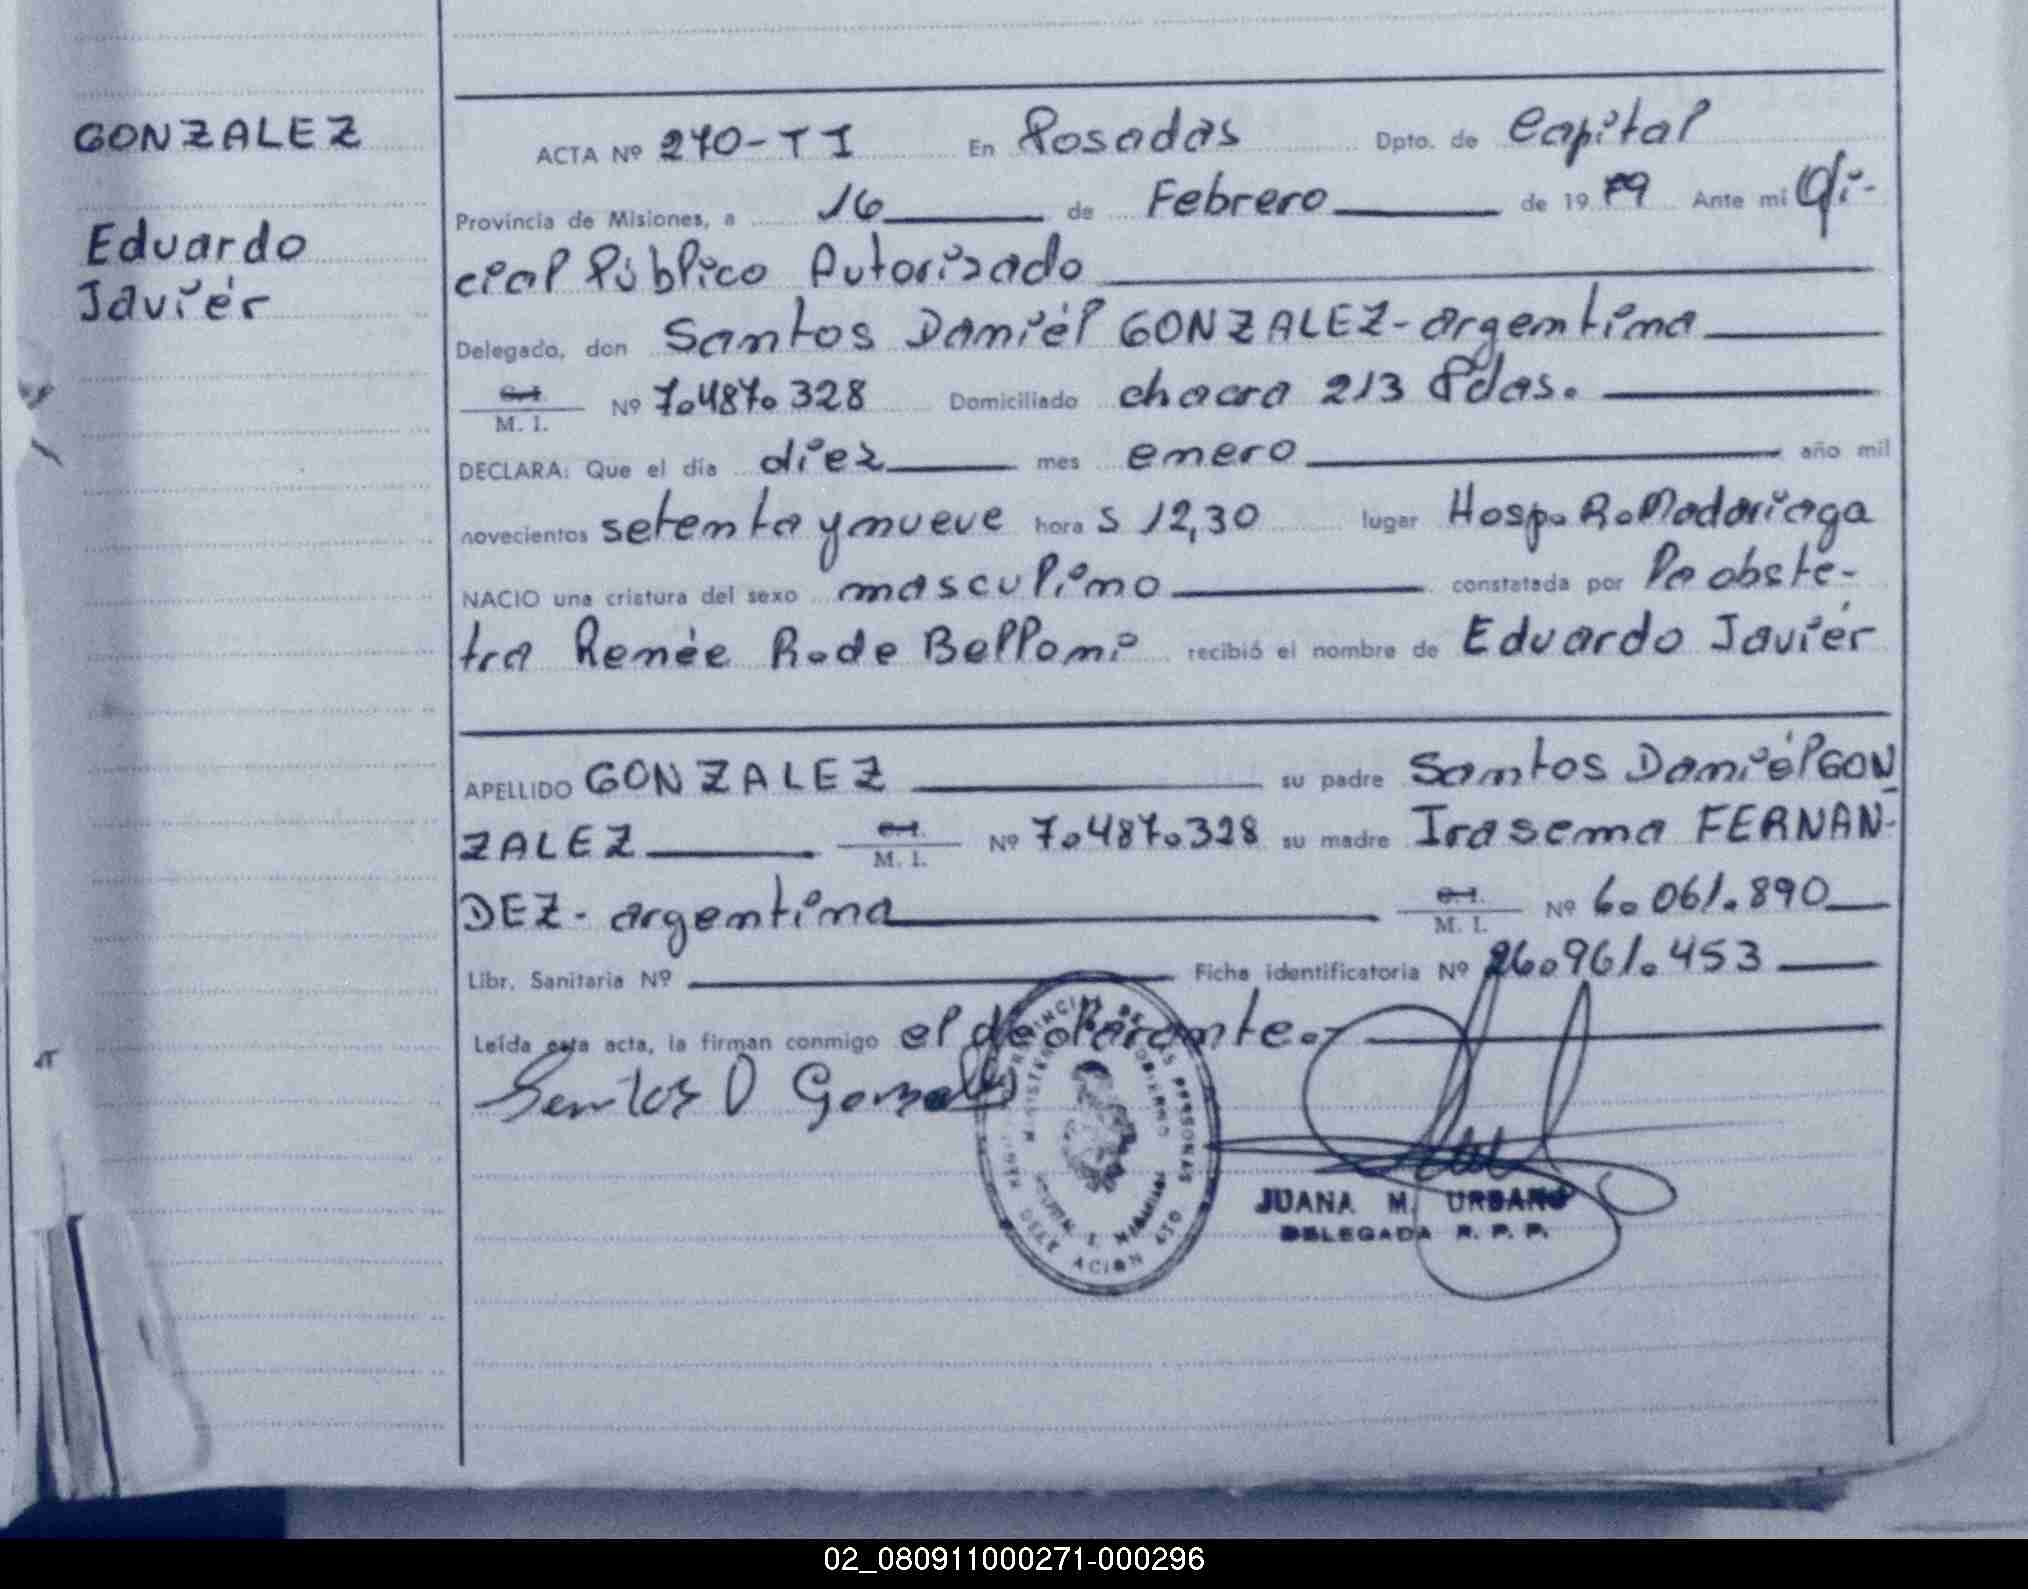 GONZALEZ
Eduardo
Javiér
ACTA Nº 270-TI En Posadas Dpto. de Capital
Provincia de Misiones, a 16 de Febrero de 1979 Ante mi Ofi-
cial Público Autorizado
Delegado, don Santos Daniél GONZALEZ-argentina
C.I. M. I. Nº 7.487.328 Domiciliado chacra 213 Pdas.
DECLARA: Que el día diez mes enero año mil
novecientos setenta y nueve hora s 12,30 lugar Hosp.R.Madariaga
NACIO una criatura del sexo masculino constatada por la obste-
tra Renée R.de Belloni recibió el nombre de Eduardo Javiér
APELLIDO GONZALEZ su padre Santos Daniél GON
ZALEZ C.I. M. I. Nº 7.487.328 su madre Irasema FERNAN-
DEZ- argentina C.I. M. I. Nº 6.061.890
Libr. Sanitaria Nº Ficha identificatoria Nº 26.961.453
Leída esta acta, la firman conmigo el declarante.-
Santos D Gonzalez
JUANA M. URBANO
DELEGADA R. P. P.
02_080911000271-000296